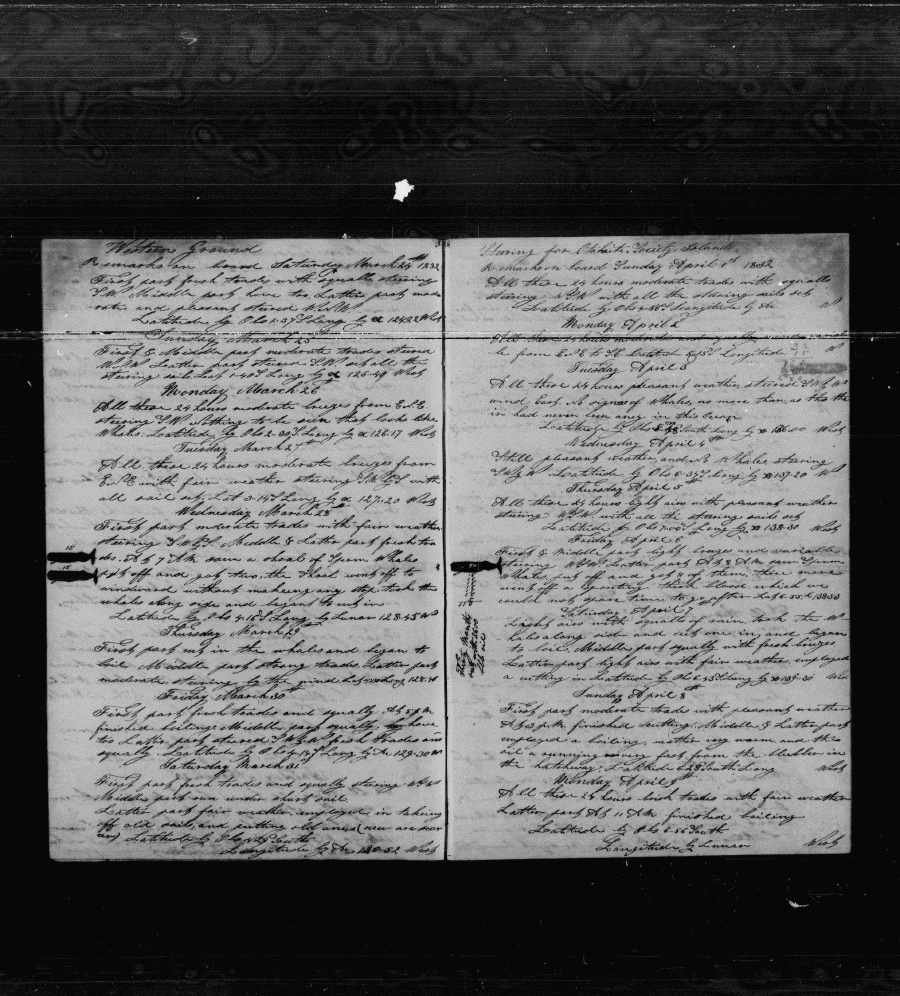 Western Ground
Remarks on board Saturday March 24th 1832
First part fresh trades with squalls steering
S.W. Middle part hove too. Latter part mod
rate and pleasant steered W.S.W.
Latitude by Obs 1.37 S Long by 124.22 West
Sunday March 25
First & Middle part moderate trades steered
W.S.W. Latter part steered S.W. with all the
steering sails. Lat 1.40 S Long by 125.49 West
Monday March 26
All these 24 hours moderate breezes from E.S.E
steering S.W. nothing to be seen that looks like
Whales. Latitude by Obs 2.30 S Long by 126.17 West
Tuesday March 27
All these 24 hours moderate breezes from
E.S.E with fair weather steering S.W. by S with
all sail set. Lat 3.14 S Long by 127.20 West
Wednesday March 28th
First part moderate trades with fair weather
steering S.W. by S. Middle & Latter part fresh tra
des. At 7 A.M. saw a shoal of Sperm Whales
put off and got two, the shoal went off to
windward without makeing any stop, took the
whales along side and began to cut in
Latitude by Obs 4.15 S Long by Lunar 128.45 W
Thursday March 29
First part cut in the whales and began to
boil Middle part strong trades. Latter part
moderate, steering by the wind
Friday March 30th
First part fresh trades and squally. At 5 P.M.
finished boiling. Middle part squally, hove
too Latter part steered fresh trades and
squally. Latitude by Obs Long by 129.30 W
Saturday March 31
First part fresh trades and squally steering W.S.W.
Middle part run under short sail
Latter part fair weather, employed in takeing
off old sails, and putting old ones (new are wor
en) Latitude by Obs South
Longitude by 130.52 West
15
15
Steering for Otahaite Society Islands
Remarks on board Sunday April 1st 1832
All these 24 hours moderate trades with squalls
steering W.S.W. with all the steering sails set
Latitude by Obs S Longitude by W
Monday April 2
All these 24 hours moderate and
le from E.S.E to Latitude Longitude W
Tuesday April 3
All these 24 hours pleasant weather, steered
wind East. No signs of Whales, no more than, as tho the
in had never been any in this Ocean
Latitude by Obs South Long by 136.00 West
Wednesday April 4th
Still pleasant weather, and No Whales steering
Latitude by Obs 6.34 S Long by 137.20 W
Thursday April 5th
All these 24 hours light airs with pleasant weather
steering W.S.W. with all the steering sails set
Latitude by Obs 7.00 S Long by 138.30 West
Friday April 6
First & Middle part light breezes and variable
steering W.S.W. Latter part At 8 A.M. saw Sperm
Whales put off and got 5 of them, three more
went off a spouting thick blood which we
could not spare time to go after Lat 6.55. L 138.53
Saturday April 7
Light airs with squalls of rain, took the W
hales along side and cut one in, and began
to boil. Middle part squally with fresh breezes
Latter part light airs with fair weather, employed
a cutting in Latitude by Obs 6.45 S Long by 139.30 West
Sunday April 8th
First part moderate trades with pleasant weather
At 3 P.M. finished cutting. Middle & Latter part
employed a boiling, wether very warm and the
oil running very fast from the blubber in
the hatchway. Latitude 6.28 South Long West
Monday April 9th
All these 24 hours brisk trades with fair weather
Latter part At 11 A.M. finished boiling
Latitude by Obs 6.56 South
Longitude by Lunar West
Thirty Months
out with 1600
bbls oil